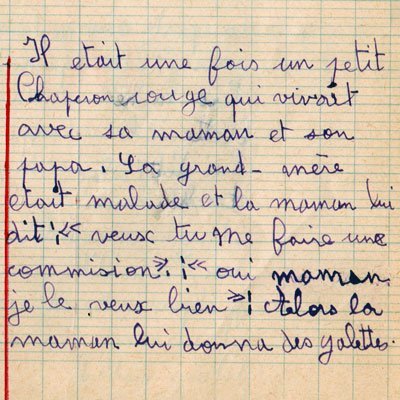 Il etait une fois un petit
Chaperon rouge qui vivait
avec sa maman et son
papa. Sa grand-mère
etait malade et la maman lui
dit ; « veux tu me faire une
commision ». ; « oui maman
je le veux bien » ; Alors la
maman lui donna des galettes.